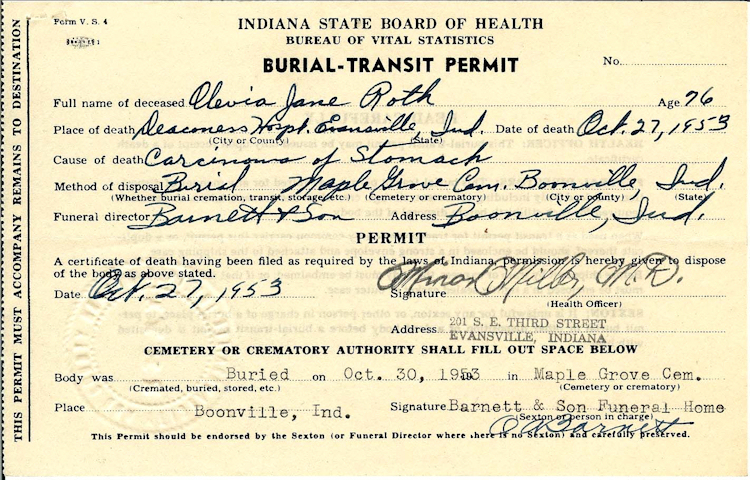 Form V. S. 4
INDIANA STATE BOARD OF HEALTH
BUREAU OF VITAL STATISTICS
BURIAL-TRANSIT PERMIT
No.
Full name of deceased Olevia Jane Roth Age 76
Place of death Deaconess Hospt. Evansville, Ind. Date of death Oct. 27, 1953
(City or County) (State)
Cause of death Carcinoma of Stomach
Method of disposal Burial Maple Grove Cem. Boonville, Ind.
(Whether burial cremation, transit, storage, etc.) (Cemetery or crematory) (City or county) (State)
Funeral director Barnett & Son Address Boonville, Ind.
PERMIT
A certificate of death having been filed as required by the laws of Indiana permission is hereby given to dispose
of the body as above stated.
Date Oct. 27, 1953 Signature Minor Miller, M.D.
(Health Officer)
Address 201 S. E. THIRD STREET
EVANSVILLE, INDIANA
CEMETERY OR CREMATORY AUTHORITY SHALL FILL OUT SPACE BELOW
Body was Buried on Oct. 30, 1953 in Maple Grove Cem.
(Cremated, buried, stored, etc.) (Cemetery or crematory)
Place Boonville, Ind. Signature Barnett & Son Funeral Home
(Sexton or person in charge)
Barnett
This Permit should be endorsed by the Sexton (or Funeral Director where there is no Sexton) and carefully preserved.
THIS PERMIT MUST ACCOMPANY REMAINS TO DESTINATION